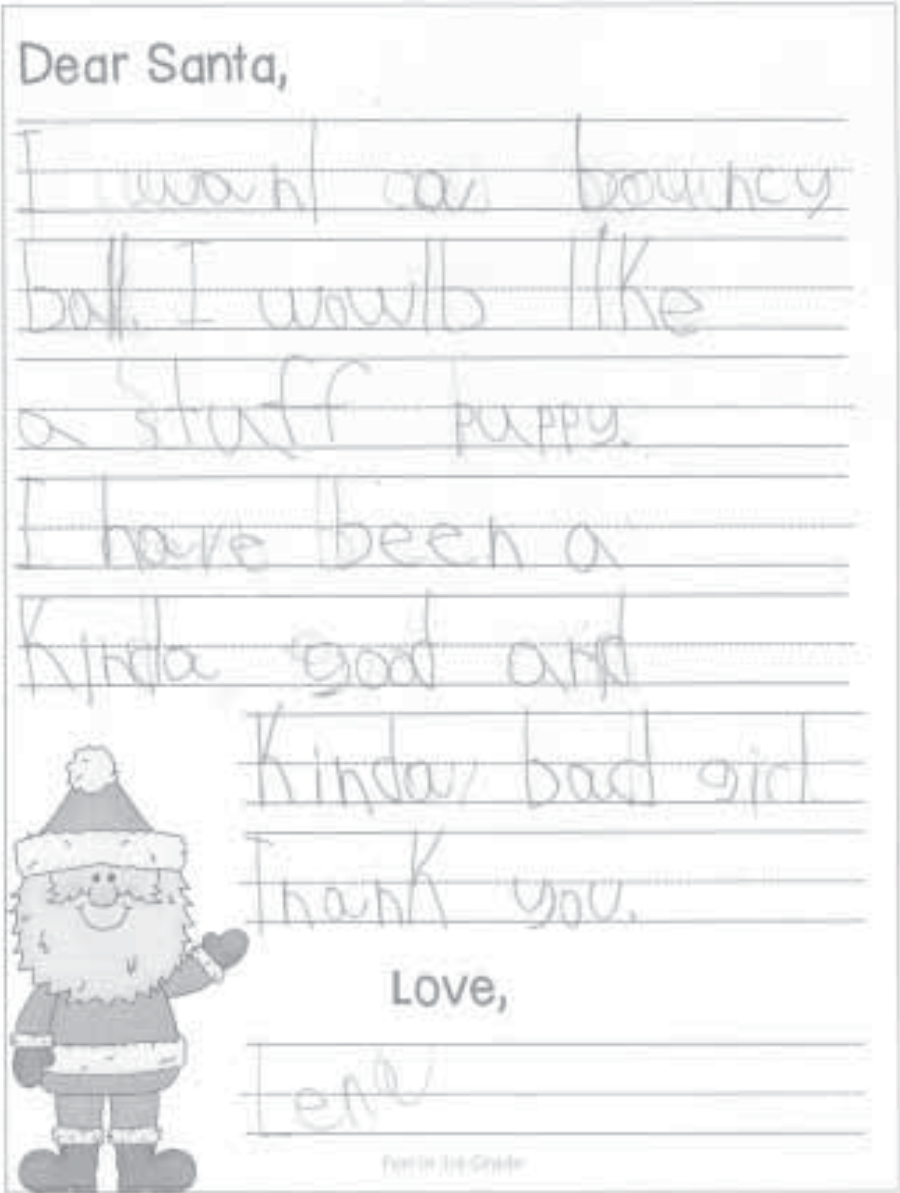 Dear Santa,
I want a bouncy
ball. I wowlb like
a stuff puppy.
I have been a
Kinda good and
Kinda bad girl
Thank you.
Love,
Fun in 1st Grade